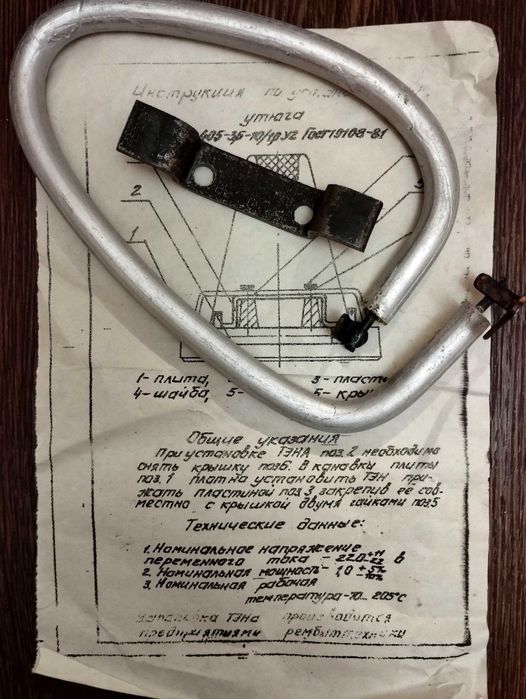 Инструкция по уст.
утюга
405-3,5-10/1р У2 ГОСТ 19108-81
2
1
1- плита, 3- пласт
4- шайба, 5- 5- кры
Общие указания
При установке ТЭНА поз. 2 необходимо
снять крышку поз 6. В канавки плиты
поз. 1 плотно установить ТЭН при-
жать пластиной поз 3 закрепив её сов-
местно с крышкой двумя гайками поз.5
Технические данные:
1. Номинальное напряжение
переменного тока - 220 +11 -22 в
2. Номинальная мощность - 1,0 +5% -10%
3. Номинальная рабочая
температура -70... 205°С
Установка ТЭНа производится
предприятиями рембыттехники